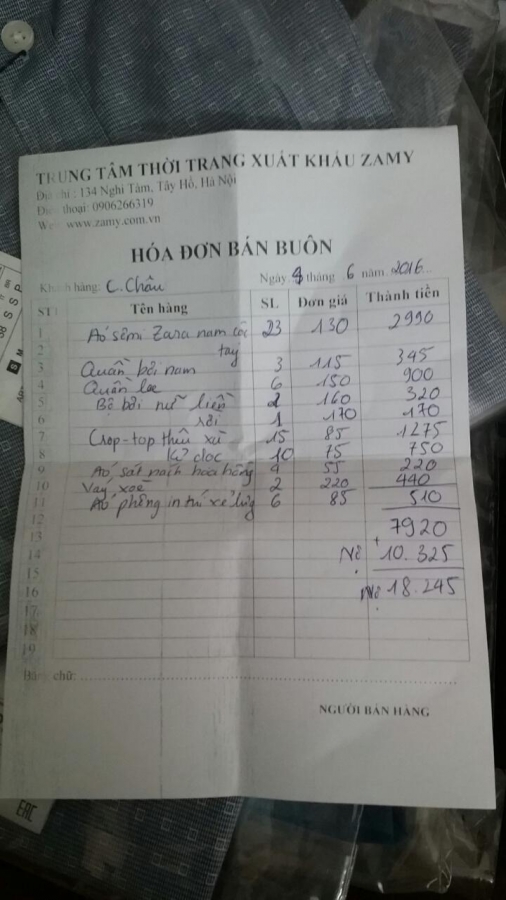 TRUNG TÂM THỜI TRANG XUẤT KHẨU ZAMY
Địa chỉ : 134 Nghi Tàm, Tây Hồ, Hà Nội
Điện thoại: 0906266319
Web: www.zamy.com.vn
HÓA ĐƠN BÁN BUÔN
Khách hàng: C. Châu Ngày 8 tháng 6 năm 2016
STT Tên hàng SL Đơn giá Thành tiền
1 Áo sơmi Zara nam cộc 23 130 2990
2 tay
3 Quần bơi nam 3 115 345
4 Quần 6 150 900
5 Bộ bơi nữ liền 2 160 320
6 rời 1 170 170
7 Crop-top thêu xù 15 85 1275
8 kẻ dọc 10 75 750
9 Áo sát nách hoa hồng 4 55 220
10 Váy xoè 2 220 440
11 Áo phông in túi xẻ lưng 6 85 510
12
13 7920
14 Nợ + 10.325
15
16 Nợ 18.245
17
18
19
Bằng chữ:
NGƯỜI BÁN HÀNG
EAC